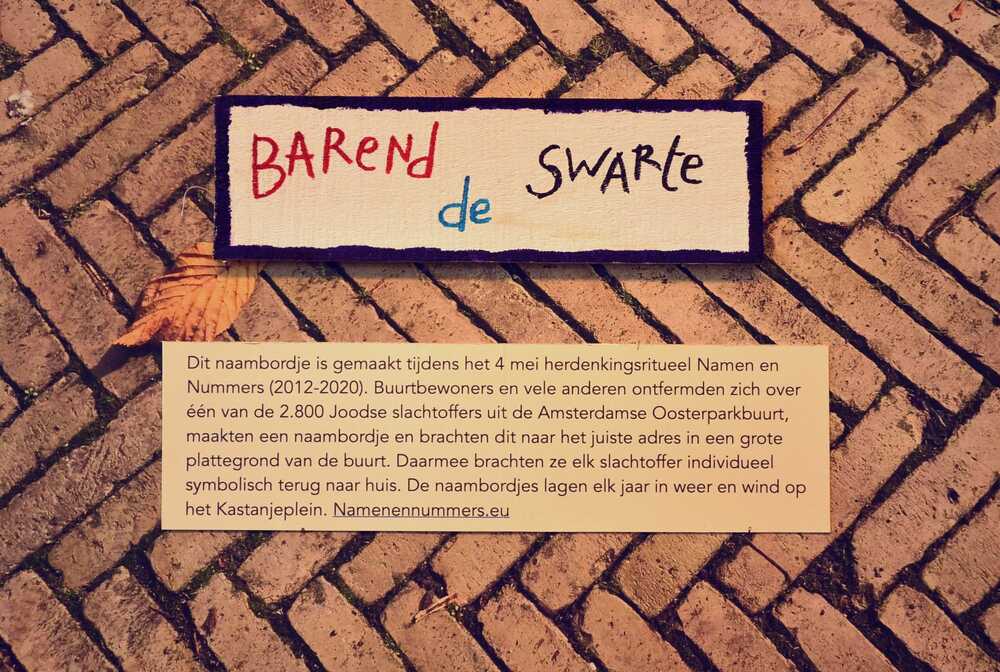 BARend de SWARte
Dit naambordje is gemaakt tijdens het 4 mei herdenkingsritueel Namen en
Nummers (2012-2020). Buurtbewoners en vele anderen ontfermden zich over
één van de 2.800 Joodse slachtoffers uit de Amsterdamse Oosterparkbuurt,
maakten een naambordje en brachten dit naar het juiste adres in een grote
plattegrond van de buurt. Daarmee brachten ze elk slachtoffer individueel
symbolisch terug naar huis. De naambordjes lagen elk jaar in weer en wind op
het Kastanjeplein. Namenennummers.eu